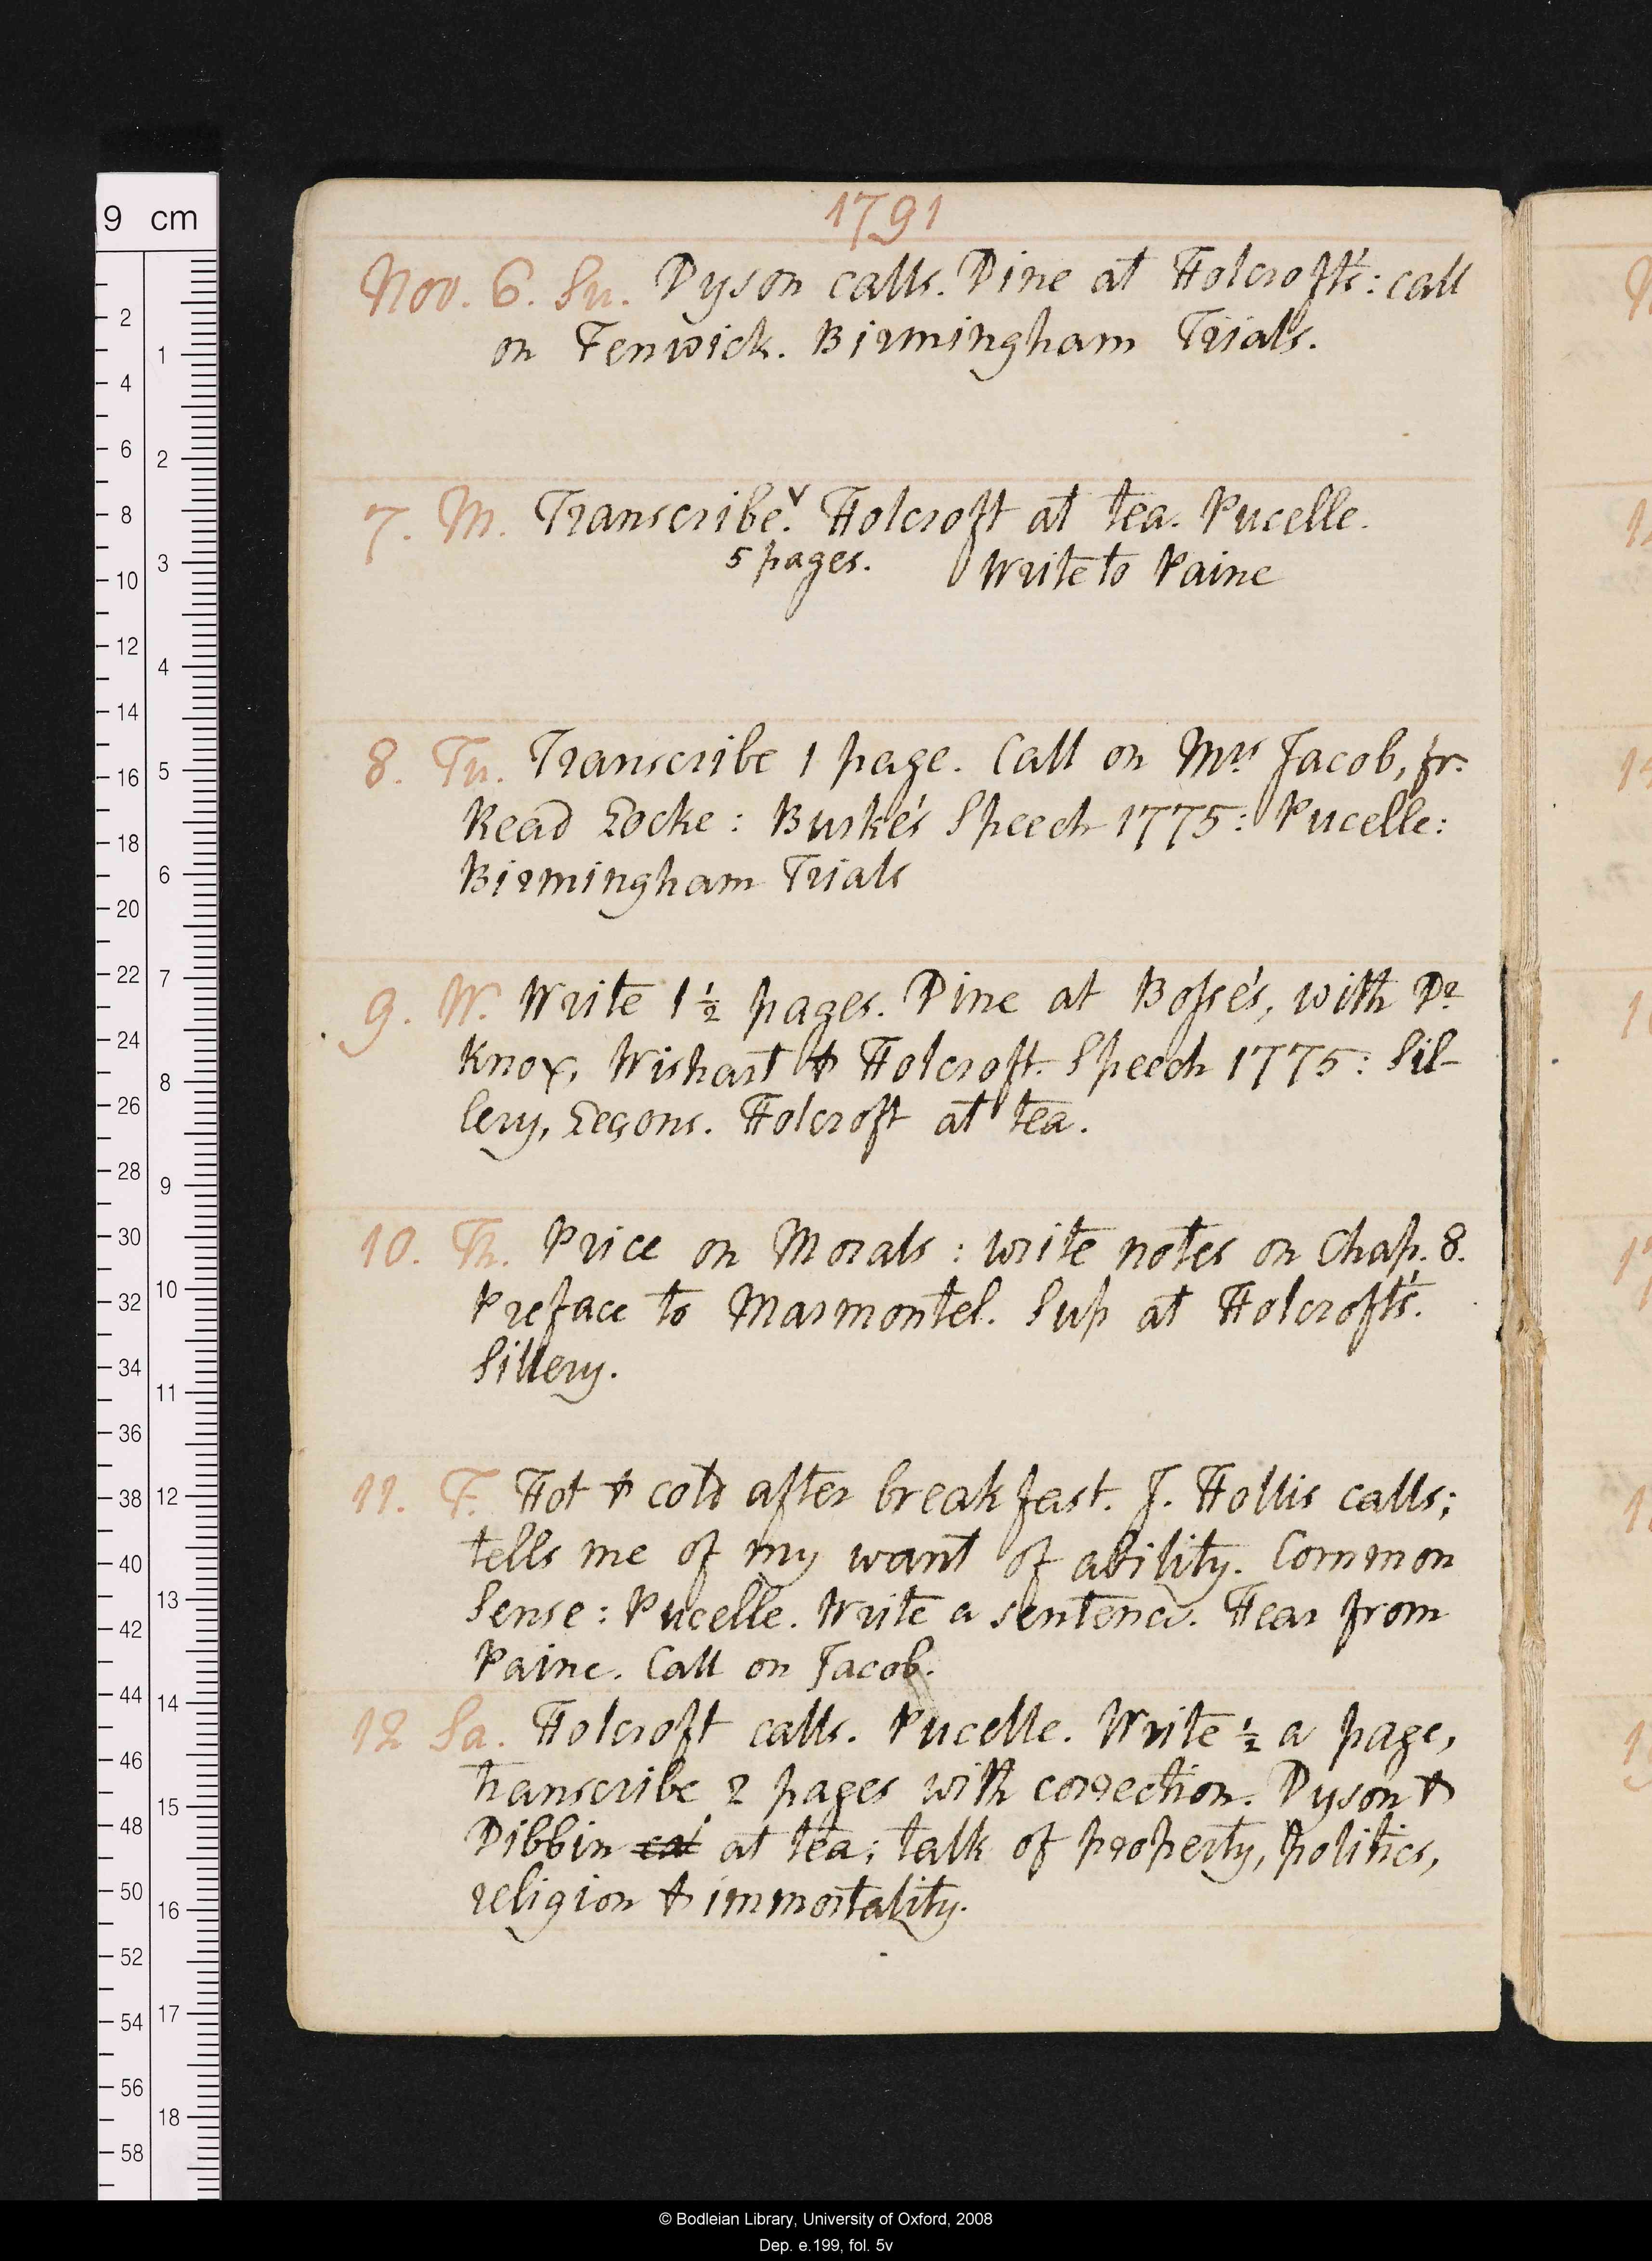 1791
Nov. 6. Su. Dyson calls. Dine at Holcroft's: call
on Fenwick. Birmingham Trials.
7. M. Transcribe. Holcroft at tea. Pucelle.
5 pages. Write to Paine
8. Tu. Transcribe 1 page. Call on Mrs Jacob, jr.
Read Locke: Burke's Speech 1775: Pucelle:
Birmingham Trials
9. W. Write 1 ½ pages. Dine at Bosse's, with Dr
Knox, Wishart & Holcroft. Speech 1775: Sil-
lery, Leçons. Holcroft at tea.
10. Th. Price on Morals: write notes on Chap. 8.
Preface to Marmontel. Sup at Holcroft's.
Sillery.
11. F. Hot & cold after breakfast. J. Hollis calls;
tells me of my want of ability. Common
Sense: Pucelle. Write a sentence. Hear from
Paine. Call on Jacob.
12 Sa. Holcroft calls. Pucelle. Write ½ a page,
transcribe 2 pages with correction. Dyson &
Dibbin cal at tea; talk of property, politics,
religion & immortality.
9 cm
2
4
6
8
10
12
14
16
18
20
22
24
26
28
30
32
34
36
38
40
42
44
46
48
50
52
54
56
58
1
2
3
4
5
6
7
8
9
10
11
12
13
14
15
16
17
18
© Bodleian Library, University of Oxford, 2008
Dep. e.199, fol. 5v